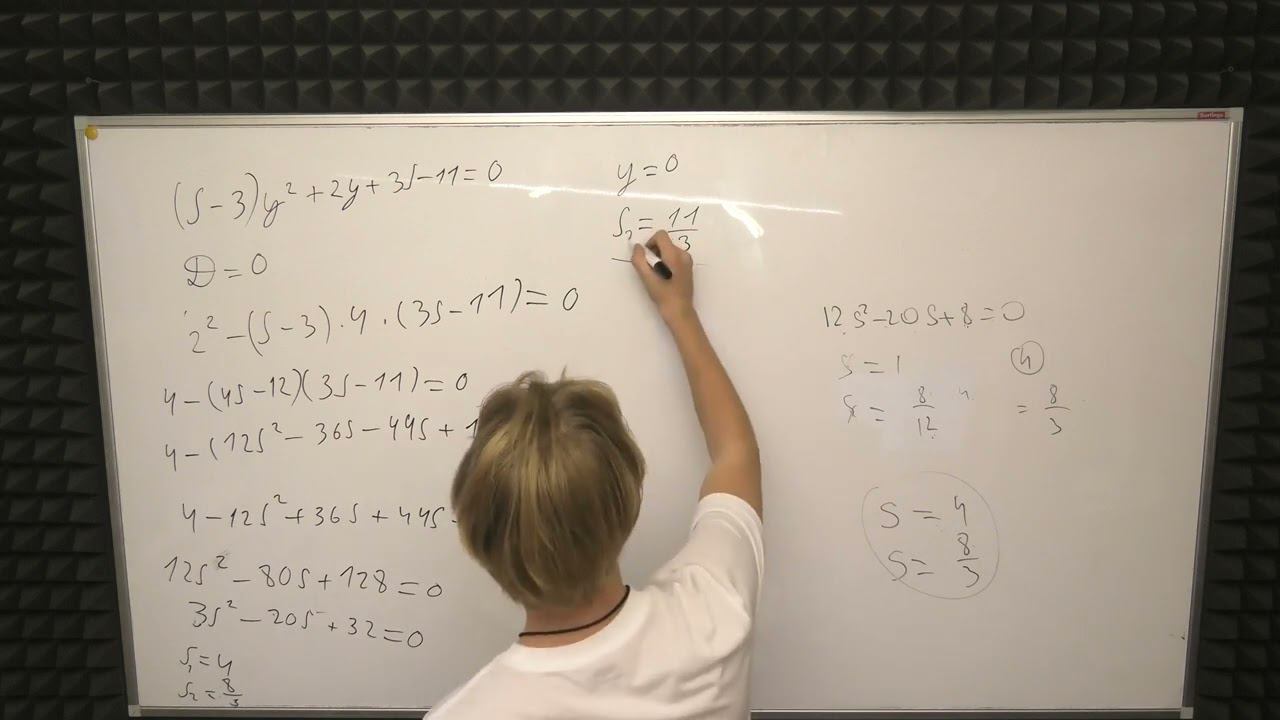 (s-3)y² + 2y + 3s-11 = 0
D = 0
2² - (s-3)·4·(3s-11) = 0
4 - (4s-12)(3s-11) = 0
4 - (12s² - 36s - 44s + 1
4 - 12s² + 36s + 44s -
12s² - 80s + 128 = 0
3s² - 20s + 32 = 0
s₁ = 4
s₂ = 8/3
y = 0
s₂ = 11/3
12s² - 20s + 8 = 0
s = 1
4
s = 8/12
= 8/3
s = 4
s = 8/3